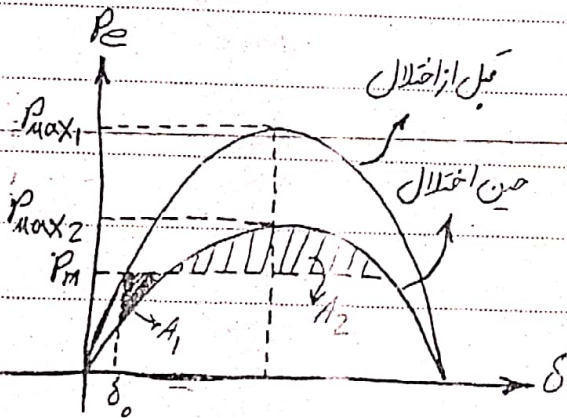 Pe
قبل از اختلال
Pmax₁
حین اختلال
Pmax₂
Pm
A₁
A₂
δ₀
δ